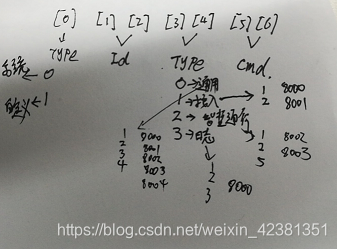 [0] [1] [2] [3] [4] [5] [6]
TYPE Id TYPE cmd.
系统 ← 0
自定义 ← 1
0 → 通用
1 → 接入
2 →
3 → 日志
1 8000
2 8001
1 8002
2 8003
5
1 8000
2 8001
3 8002
4 8003
8004
1
2
3 8000
https://blog.csdn.net/weixin_42381351